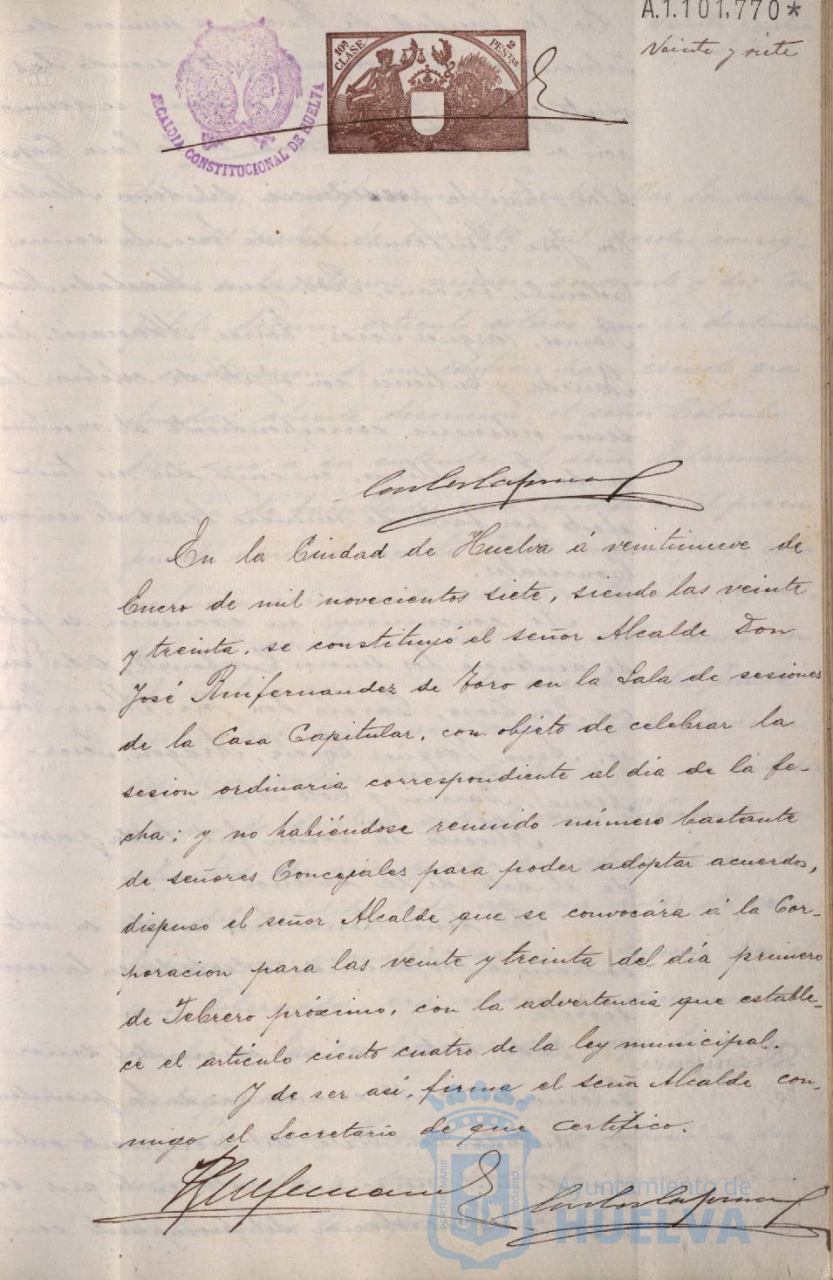 A.1.101.770*
Veinte y siete
ALCALDIA CONSTITUCIONAL DE HUELVA
10ª CLASE
2 PESETAS
En la Ciudad de Huelva á veintinueve de
Enero de mil novecientos siete, siendo las veinte
y treinta, se constituyó el señor Alcalde Don
José Ruifernandez de Toro en la Sala de sesiones
de la Casa Capitular, con objeto de celebrar la
sesion ordinaria correspondiente al dia de la fe-
cha; y no habiéndose reunido número bastante
de señores Concejales para poder adoptar acuerdos,
dispuso el señor Alcalde que se convocára á la Cor-
poracion para las veinte y treinta del día primero
de Febrero próximo, con la advertencia que estable-
ce el artículo ciento cuatro de la ley municipal.
Y de ser así, firma el señor Alcalde con-
migo el Secretario de que certifico.
Ayuntamiento de
HUELVA